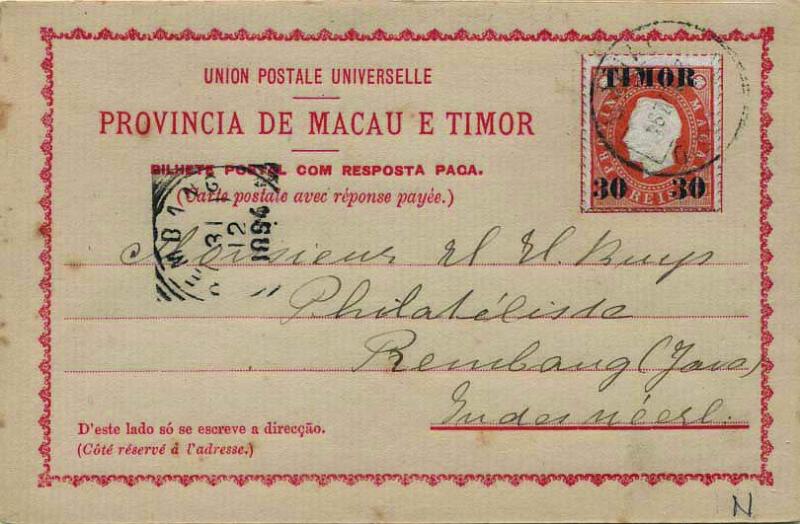 UNION POSTALE UNIVERSELLE
PROVINCIA DE MACAU E TIMOR
BILHETE POSTAL COM RESPOSTA PAGA.
(Carte postale avec réponse payée.)
TIMOR
30 30
REIS
31
12
1894
Monsieur H. H. Kuys
Philatéliste
Rembang (Java)
Indes néerl.
D'este lado só se escreve a direcção.
(Côté réservé à l'adresse.)
N